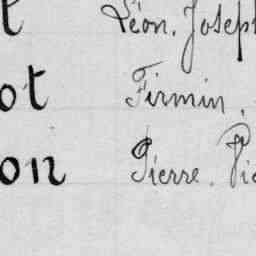 t Léon. Joseph
ot Firmin.
on Pierre. Pie